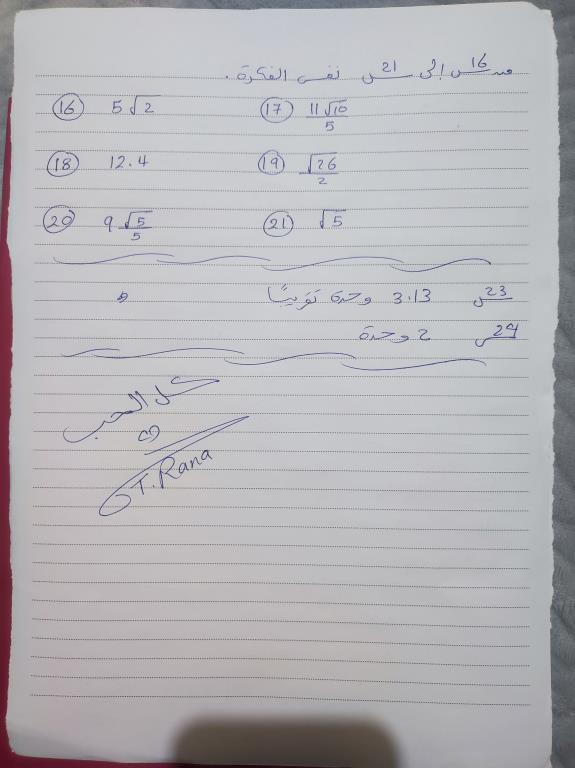 من س16 إلى س21 نفس الفكرة .
⑯ 5√2 ⑰ 11√10/5
⑱ 12.4 ⑲ √26/2
⑳ 9√5/5 ㉑ √5
س23 3.13 وحدة تقريبًا
س24 2 وحدة
كل الحب
T.Rana